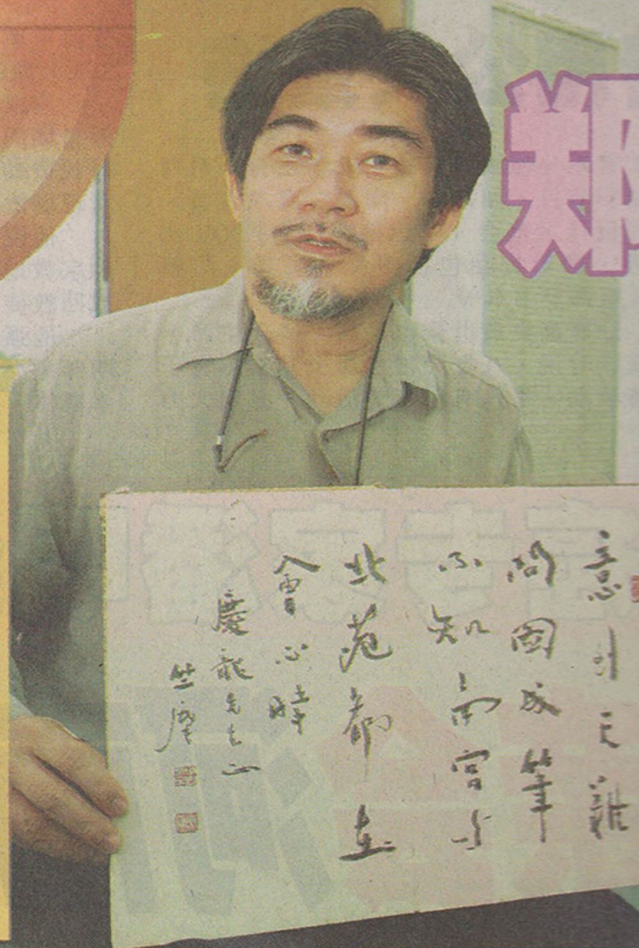 郑
意到天難
問圖成筆
不知南宮与
北苑都在
會心時
慶龍先生正
竺摩